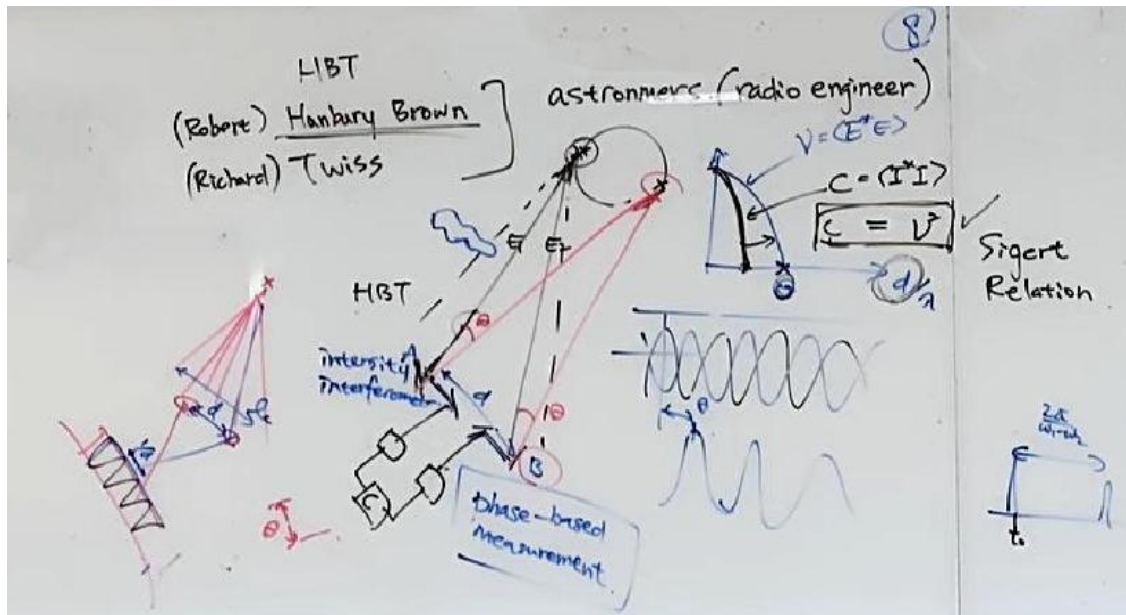 8
HBT
(Robert) Hanbury Brown
(Richard) Twiss
astronmers (radio engineer)
V = ⟨E*E⟩
C = ⟨I*I⟩
C = V²
Sigert
Relation
d/λ
θ
HBT
E₁
θ
intensity
d
θ
B
C
phase-based
measurement
θ
d
θ
t₀